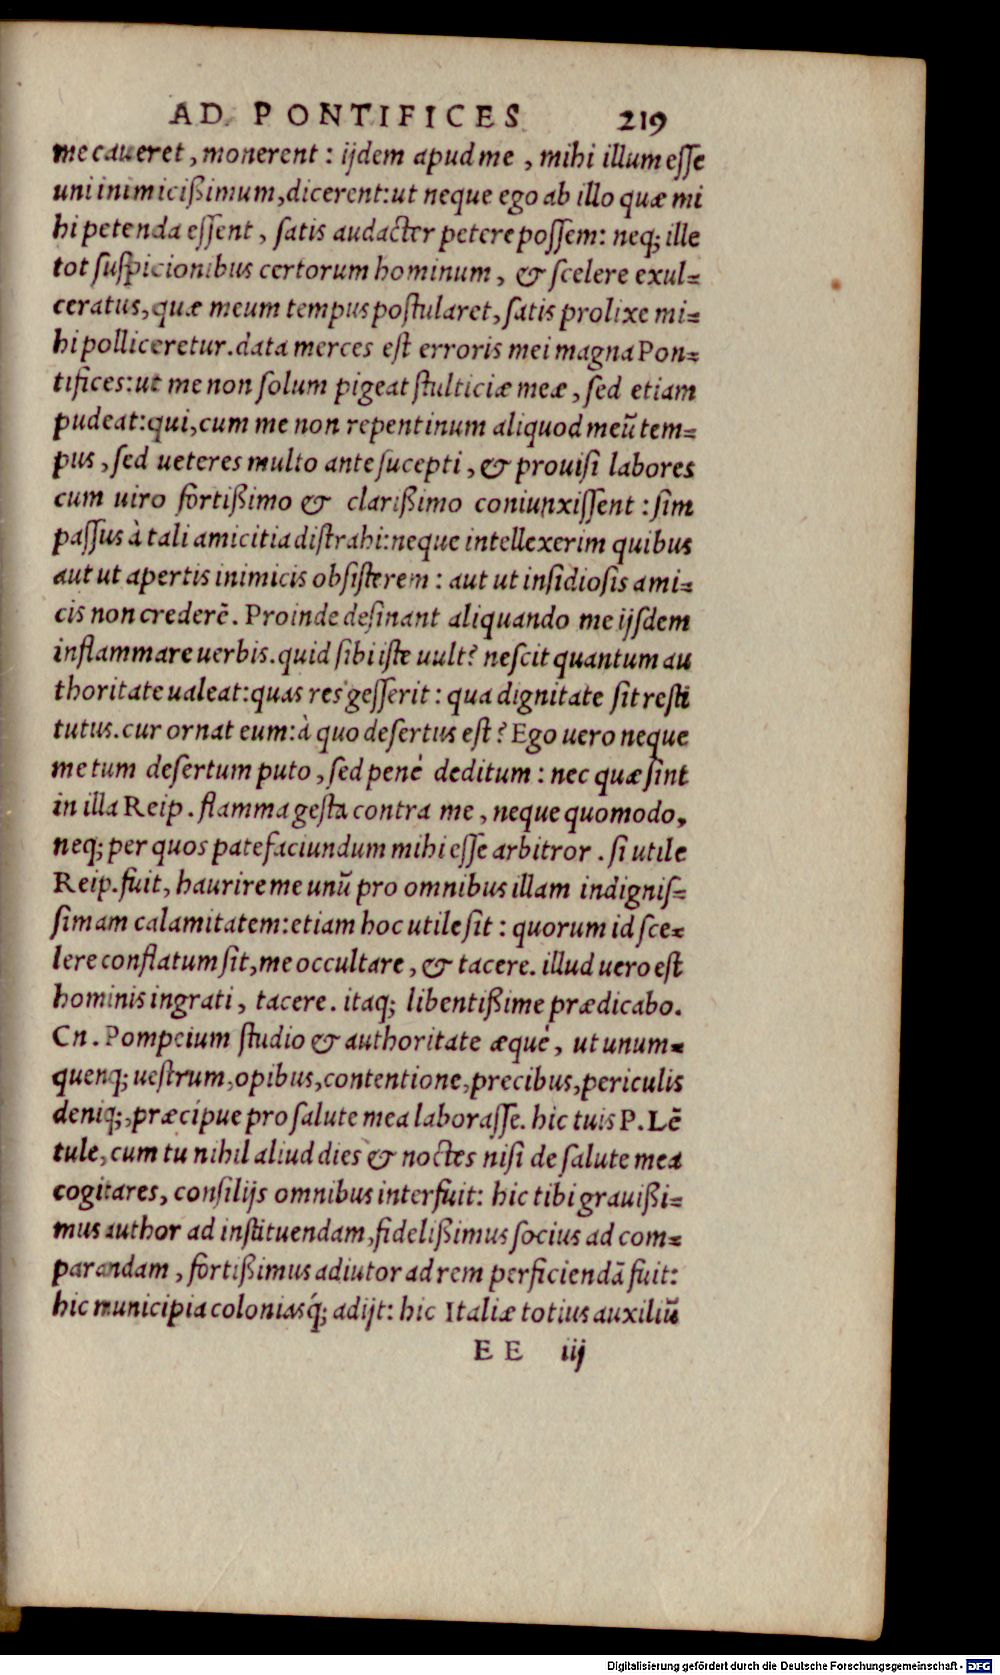 AD PONTIFICES 219
me caueret, monerent: ijdem apud me, mihi illum esse
uni inimicißimum, dicerent: ut neque ego ab illo quæ mi
hi petenda essent, satis audacter petere possem: neq; ille
tot suspicionibus certorum hominum, & scelere exul-
ceratus, quæ meum tempus postularet, satis prolixe mi-
hi polliceretur. data merces est erroris mei magna Pon-
tifices: ut me non solum pigeat stulticiæ meæ, sed etiam
pudeat: qui, cum me non repentinum aliquod meũ tem-
pus, sed ueteres multo ante sucepti, & prouisi labores
cum uiro fortißimo & clarißimo coniunxissent: sim
passus à tali amicitia distrahi: neque intellexerim quibus
aut ut apertis inimicis obsisterem: aut ut insidiosis ami-
cis non crederẽ. Proinde desinant aliquando me ijsdem
inflammare uerbis. quid sibi iste uult? nescit quantum au
thoritate ualeat: quas res gesserit: qua dignitate sit resti
tutus. cur ornat eum: à quo desertus est? Ego uero neque
me tum desertum puto, sed penè deditum: nec quæ sint
in illa Reip. flamma gesta contra me, neque quomodo,
neq; per quos patefaciundum mihi esse arbitror. si utile
Reip. fuit, haurire me unũ pro omnibus illam indignis-
simam calamitatem: etiam hoc utile sit: quorum id sce-
lere conflatum sit, me occultare, & tacere. illud uero est
hominis ingrati, tacere. itaq; libentißime prædicabo.
Cn. Pompeium studio & authoritate æquè, ut unum-
quenq; uestrum, opibus, contentione, precibus, periculis
deniq;, præcipue pro salute mea laborasse. hic tuis P. Lẽ
tule, cum tu nihil aliud dies & noctes nisi de salute mea
cogitares, consilijs omnibus interfuit: hic tibi grauißi-
mus author ad instituendam, fidelißimus socius ad com-
parandam, fortißimus adiutor ad rem perficiendã fuit:
hic municipia coloniasq́; adijt: hic Italiæ totius auxiliũ
EE iij
Digitalisierung gefördert durch die Deutsche Forschungsgemeinschaft - DFG